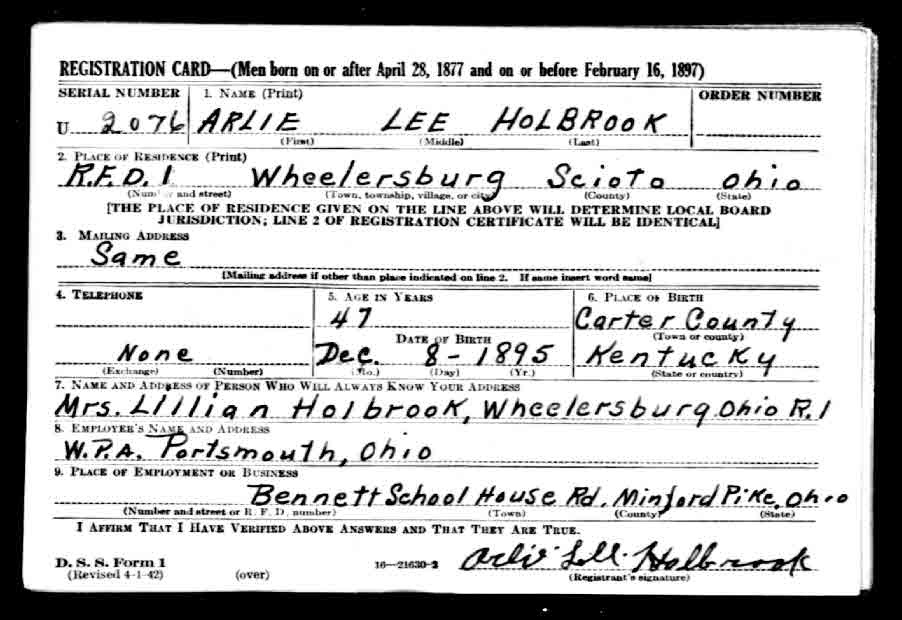 REGISTRATION CARD—(Men born on or after April 28, 1877 and on or before February 16, 1897)
SERIAL NUMBER 1. NAME (Print) ORDER NUMBER
U 2076 ARLIE LEE HOLBROOK
(First) (Middle) (Last)
2. PLACE OF RESIDENCE (Print)
R.F.D. 1 Wheelersburg Scioto Ohio
(Number and street) (Town, township, village, or city) (County) (State)
[THE PLACE OF RESIDENCE GIVEN ON THE LINE ABOVE WILL DETERMINE LOCAL BOARD
JURISDICTION; LINE 2 OF REGISTRATION CERTIFICATE WILL BE IDENTICAL]
3. MAILING ADDRESS
Same
[Mailing address if other than place indicated on line 2. If same insert word same]
4. TELEPHONE 5. AGE IN YEARS 6. PLACE OF BIRTH
47 Carter County
DATE OF BIRTH (Town or county)
None Dec. 8-1895 Kentucky
(Exchange) (Number) (Mo.) (Day) (Yr.) (State or country)
7. NAME AND ADDRESS OF PERSON WHO WILL ALWAYS KNOW YOUR ADDRESS
Mrs. Lillian Holbrook, Wheelersburg Ohio R.1
8. EMPLOYER'S NAME AND ADDRESS
W.P.A. Portsmouth, Ohio
9. PLACE OF EMPLOYMENT OR BUSINESS
Bennett School House Rd. Minford Pike, Ohio
(Number and street or R. F. D. number) (Town) (County) (State)
I AFFIRM THAT I HAVE VERIFIED ABOVE ANSWERS AND THAT THEY ARE TRUE.
D. S. S. Form 1
(Revised 4-1-42) (over) 16—21630-2 Arlie Lee Holbrook
(Registrant's signature)